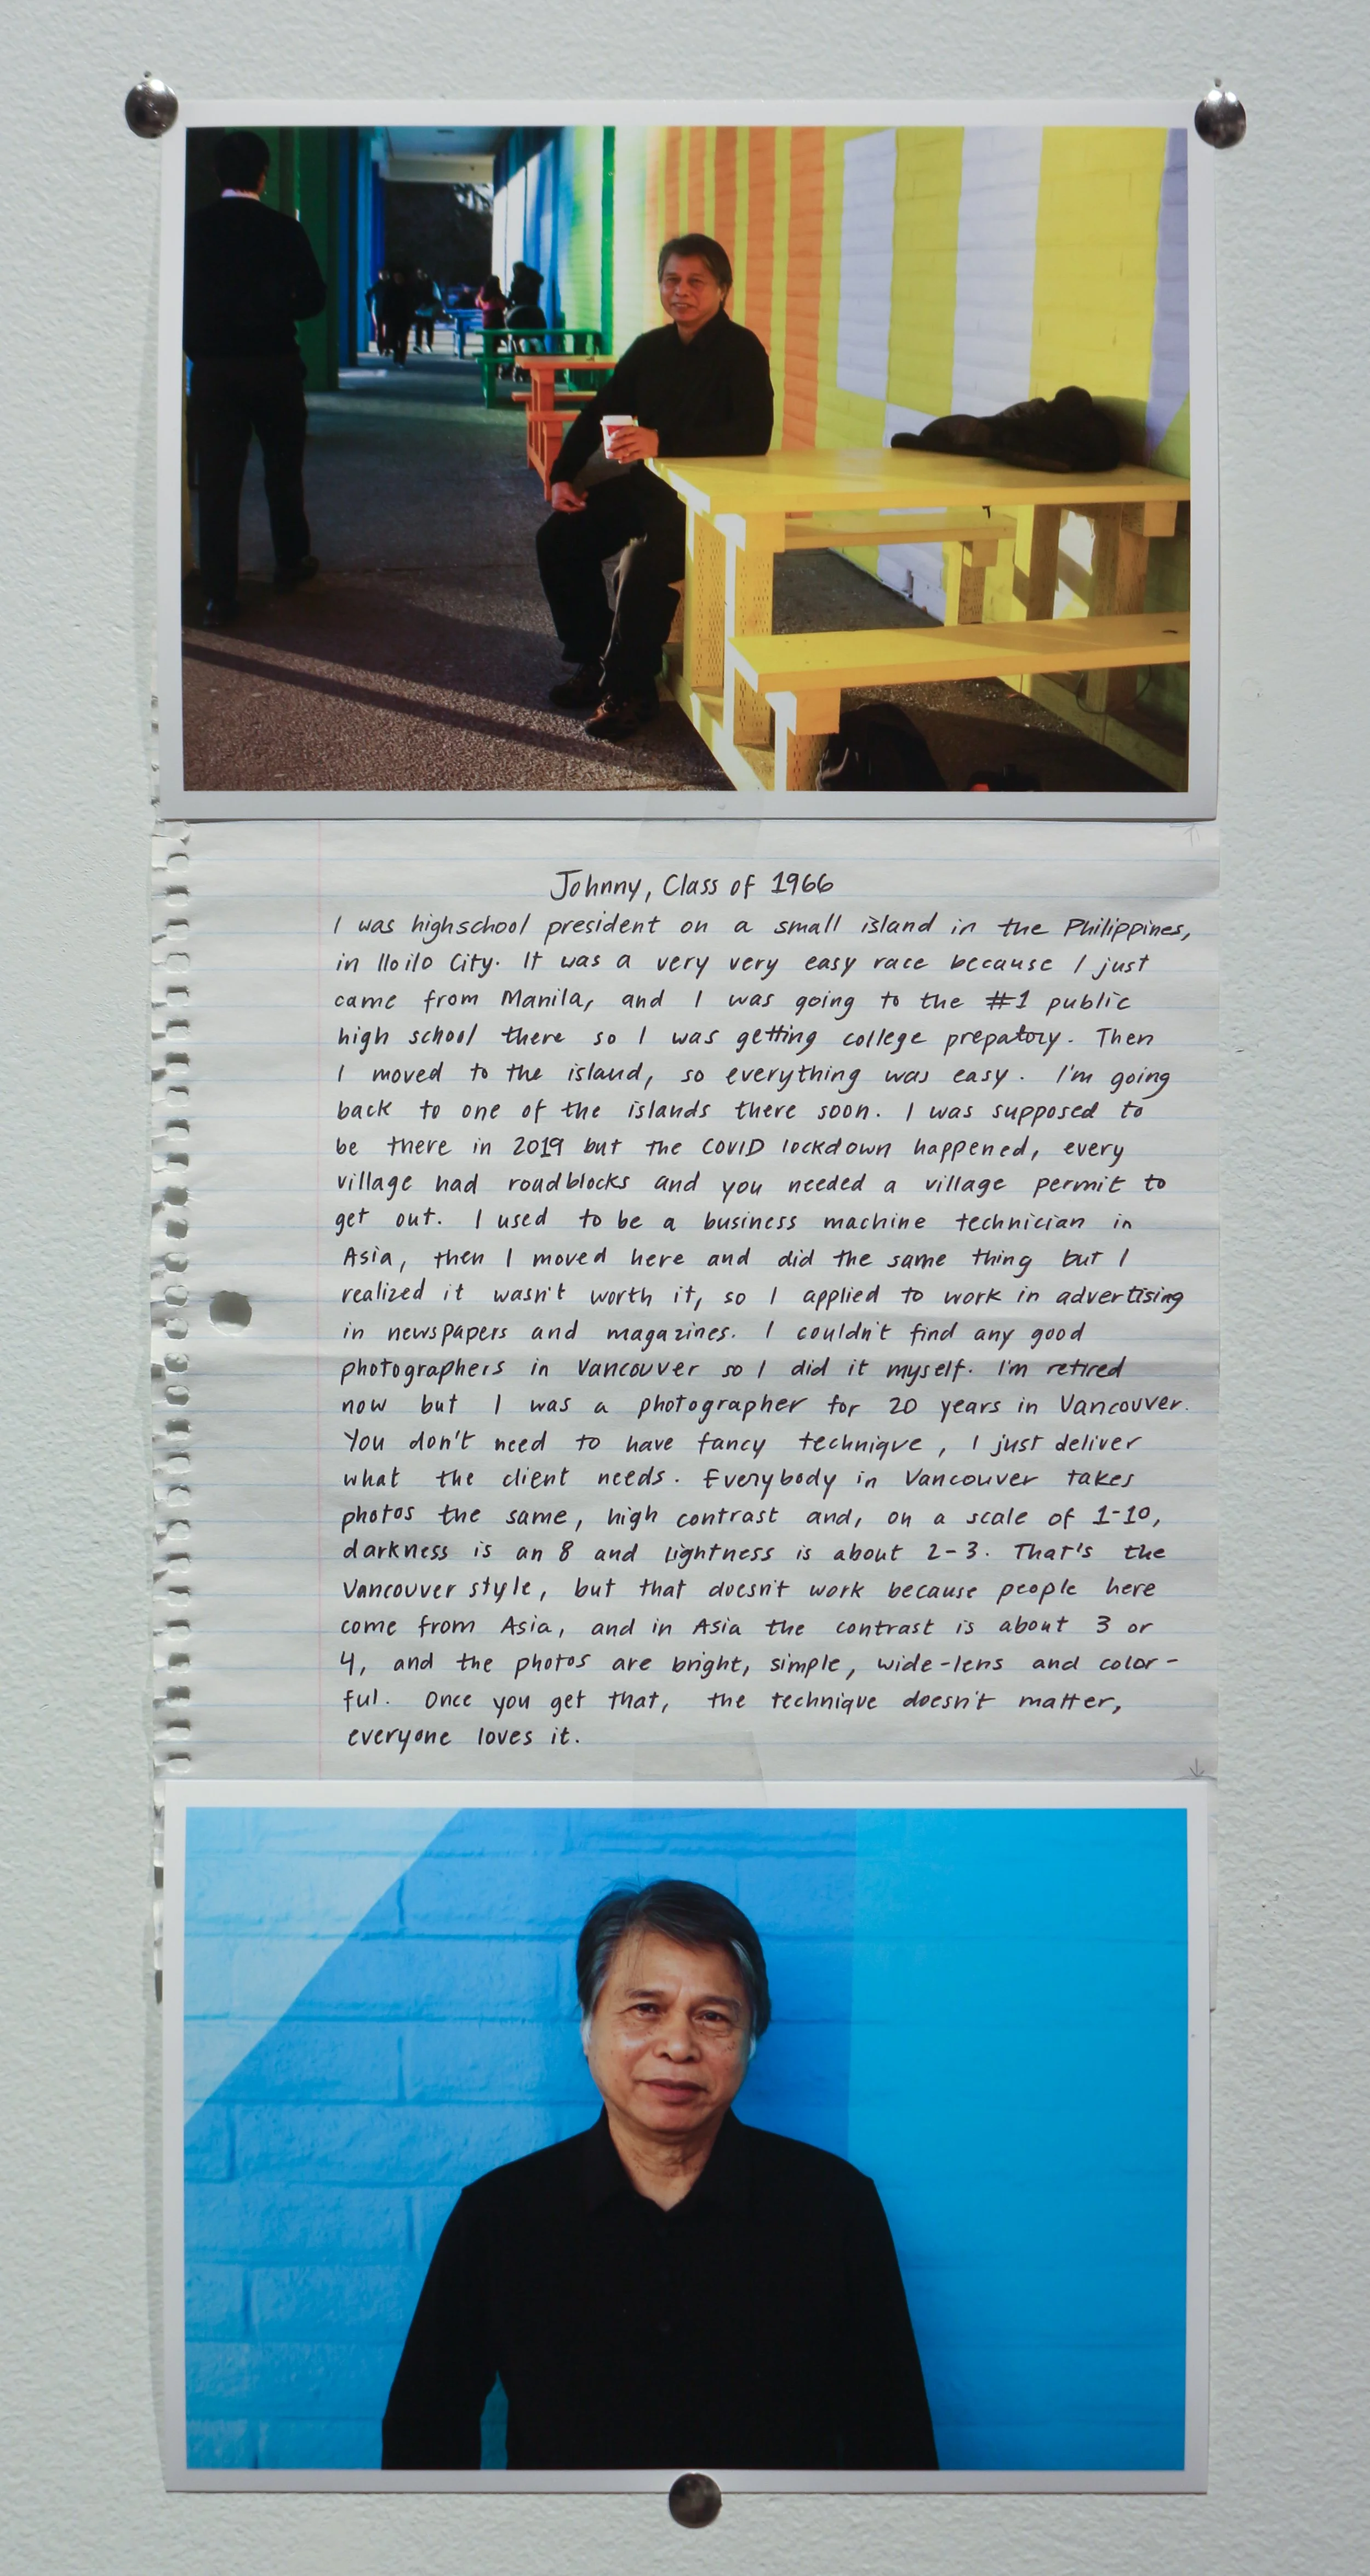 Johnny, Class of 1966
I was highschool president on a small island in the Philippines,
in Iloilo City. It was a very very easy race because I just
came from Manila, and I was going to the #1 public
high school there so I was getting college prepatory. Then
I moved to the island, so everything was easy. I'm going
back to one of the islands there soon. I was supposed to
be there in 2019 but the COVID lockdown happened, every
village had roadblocks and you needed a village permit to
get out. I used to be a business machine technician in
Asia, then I moved here and did the same thing but I
realized it wasn't worth it, so I applied to work in advertising
in newspapers and magazines. I couldn't find any good
photographers in Vancouver so I did it myself. I'm retired
now but I was a photographer for 20 years in Vancouver.
You don't need to have fancy technique, I just deliver
what the client needs. Everybody in Vancouver takes
photos the same, high contrast and, on a scale of 1-10,
darkness is an 8 and lightness is about 2-3. That's the
Vancouver style, but that doesn't work because people here
come from Asia, and in Asia the contrast is about 3 or
4, and the photos are bright, simple, wide-lens and color-
ful. Once you get that, the technique doesn't matter,
everyone loves it.